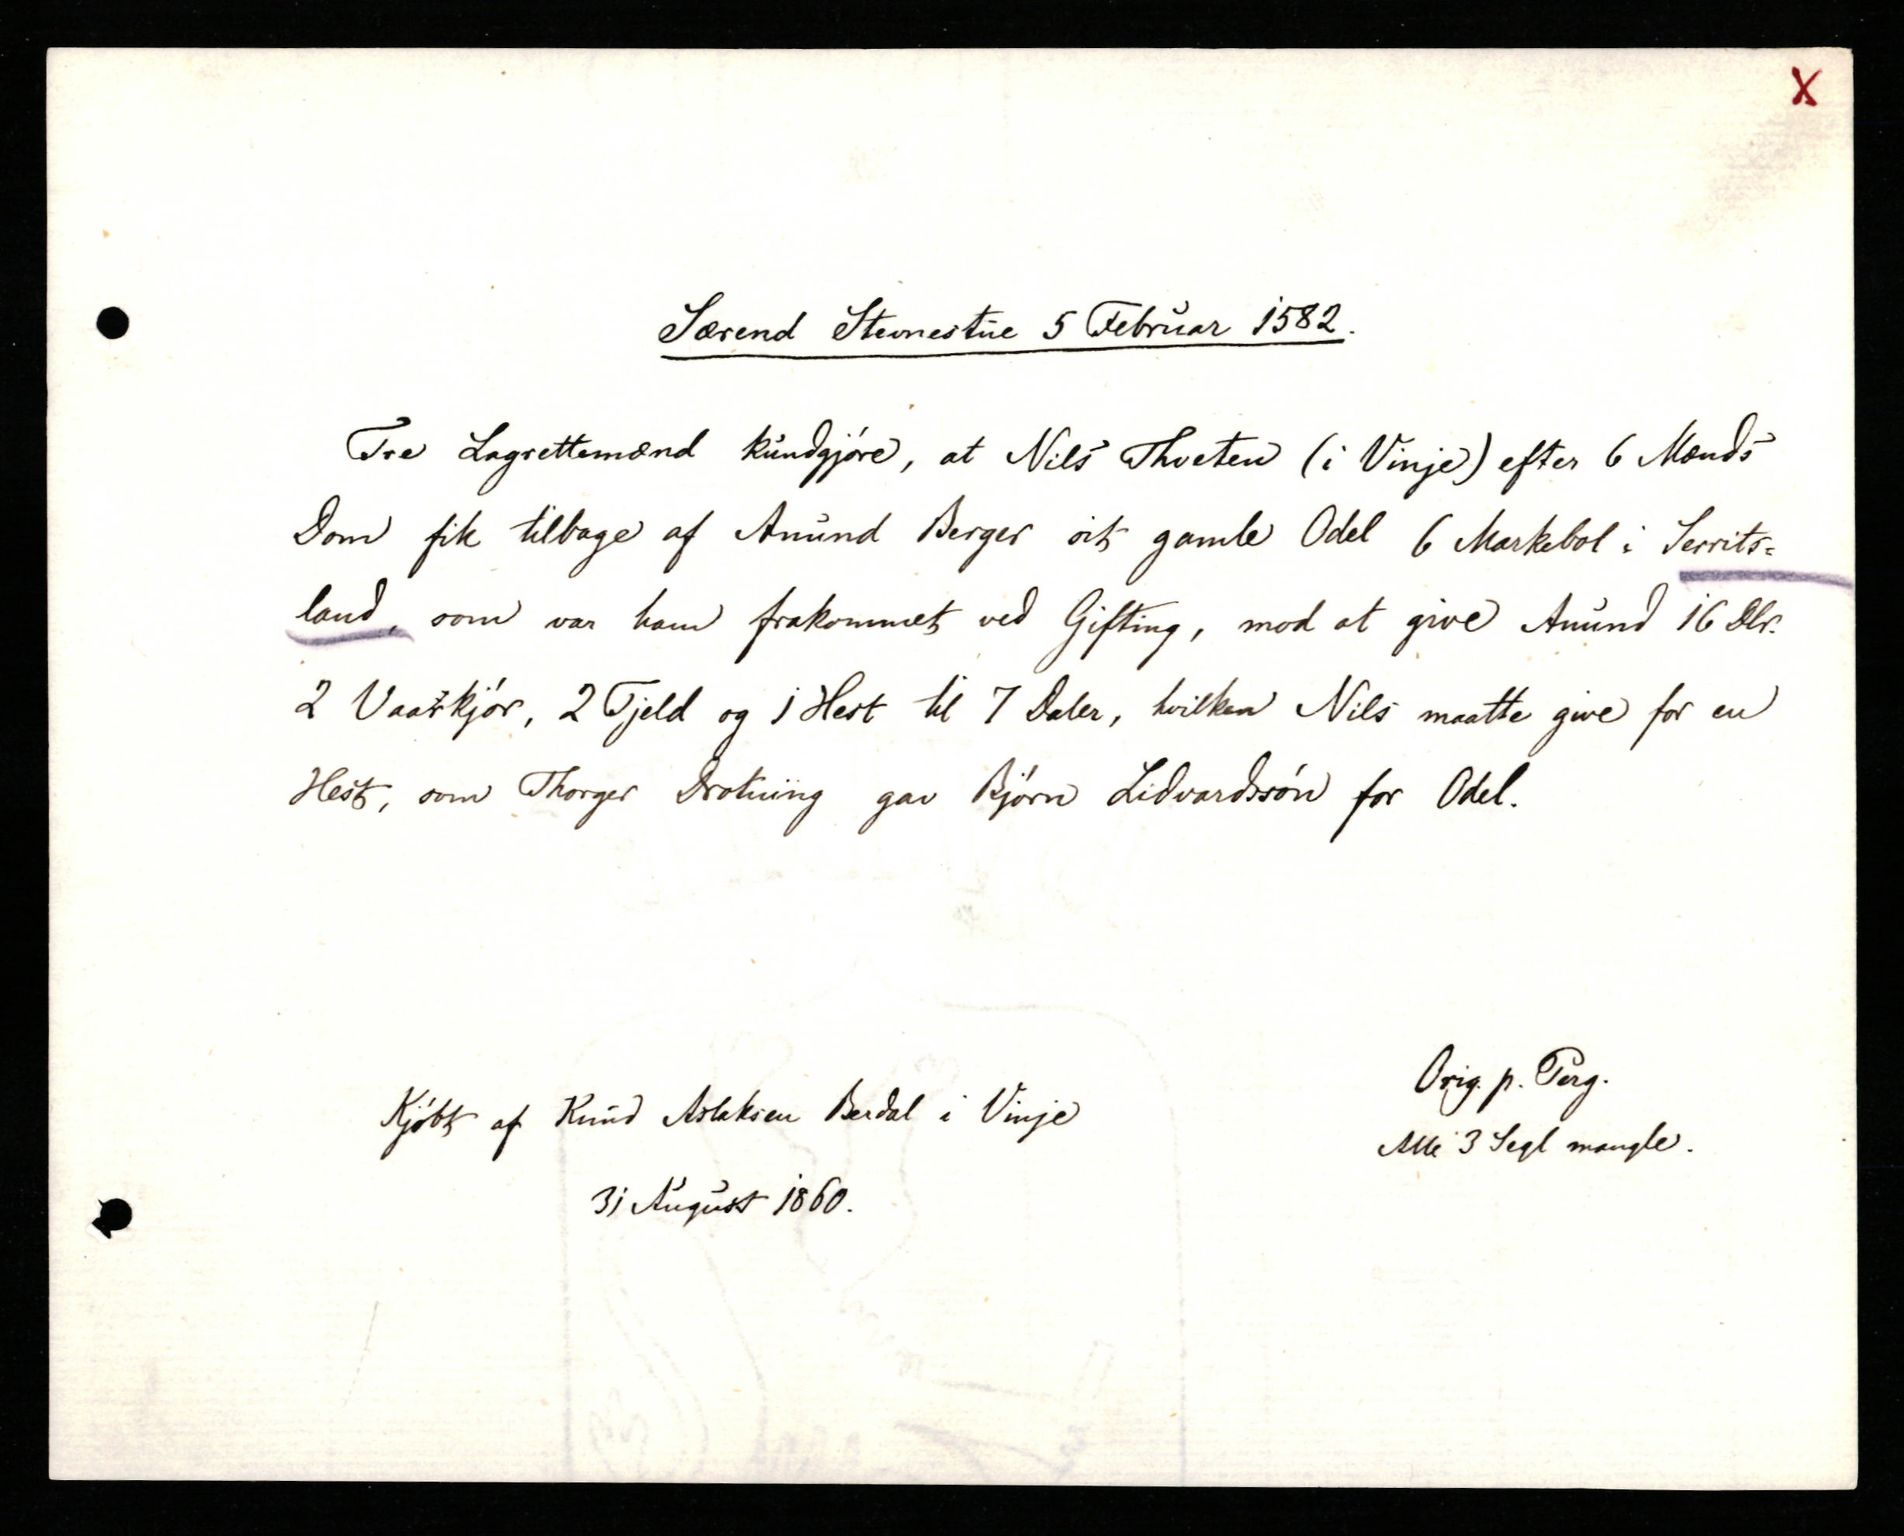 X
Særend Stevnestue 5 Februar 1582.
Tre Lagrettemænd kundgjöre, at Nils Thveten (i Vinje) efter 6 Mænds
Dom fik tilbage af Anund Berger sit gamle Odel 6 Markebol i Serrits=
land, som var ham frakommet ved Gifting, mod at give Anund 16 Dlr.
2 Vaarkjör, 2 Tjeld og 1 Hest til 7 Daler, hvilken Nils maatte give for en
Hest, som Thorger Drotning gav Björn Lidvardssön for Odel.
Kjöbt af Knud Aslaksen Berdal i Vinje
31 August 1860.
Orig. p. Perg.
Alle 3 Segl mangle.